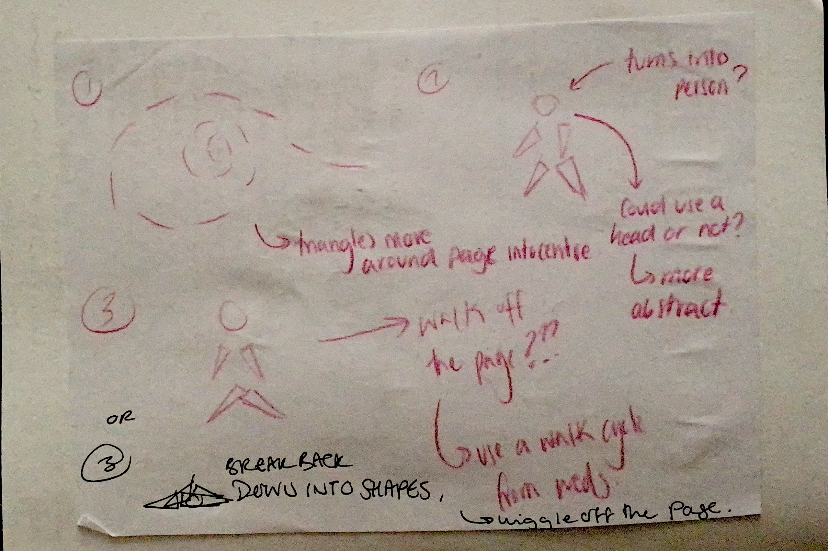 ①
triangles move
around page into centre
②
turns into
person?
Could use a
head or not?
more
abstract
③
walk off
the page???
use a walk cycle
from
wiggle off the page.
OR
③
BREAK BACK
DOWN INTO SHAPES.